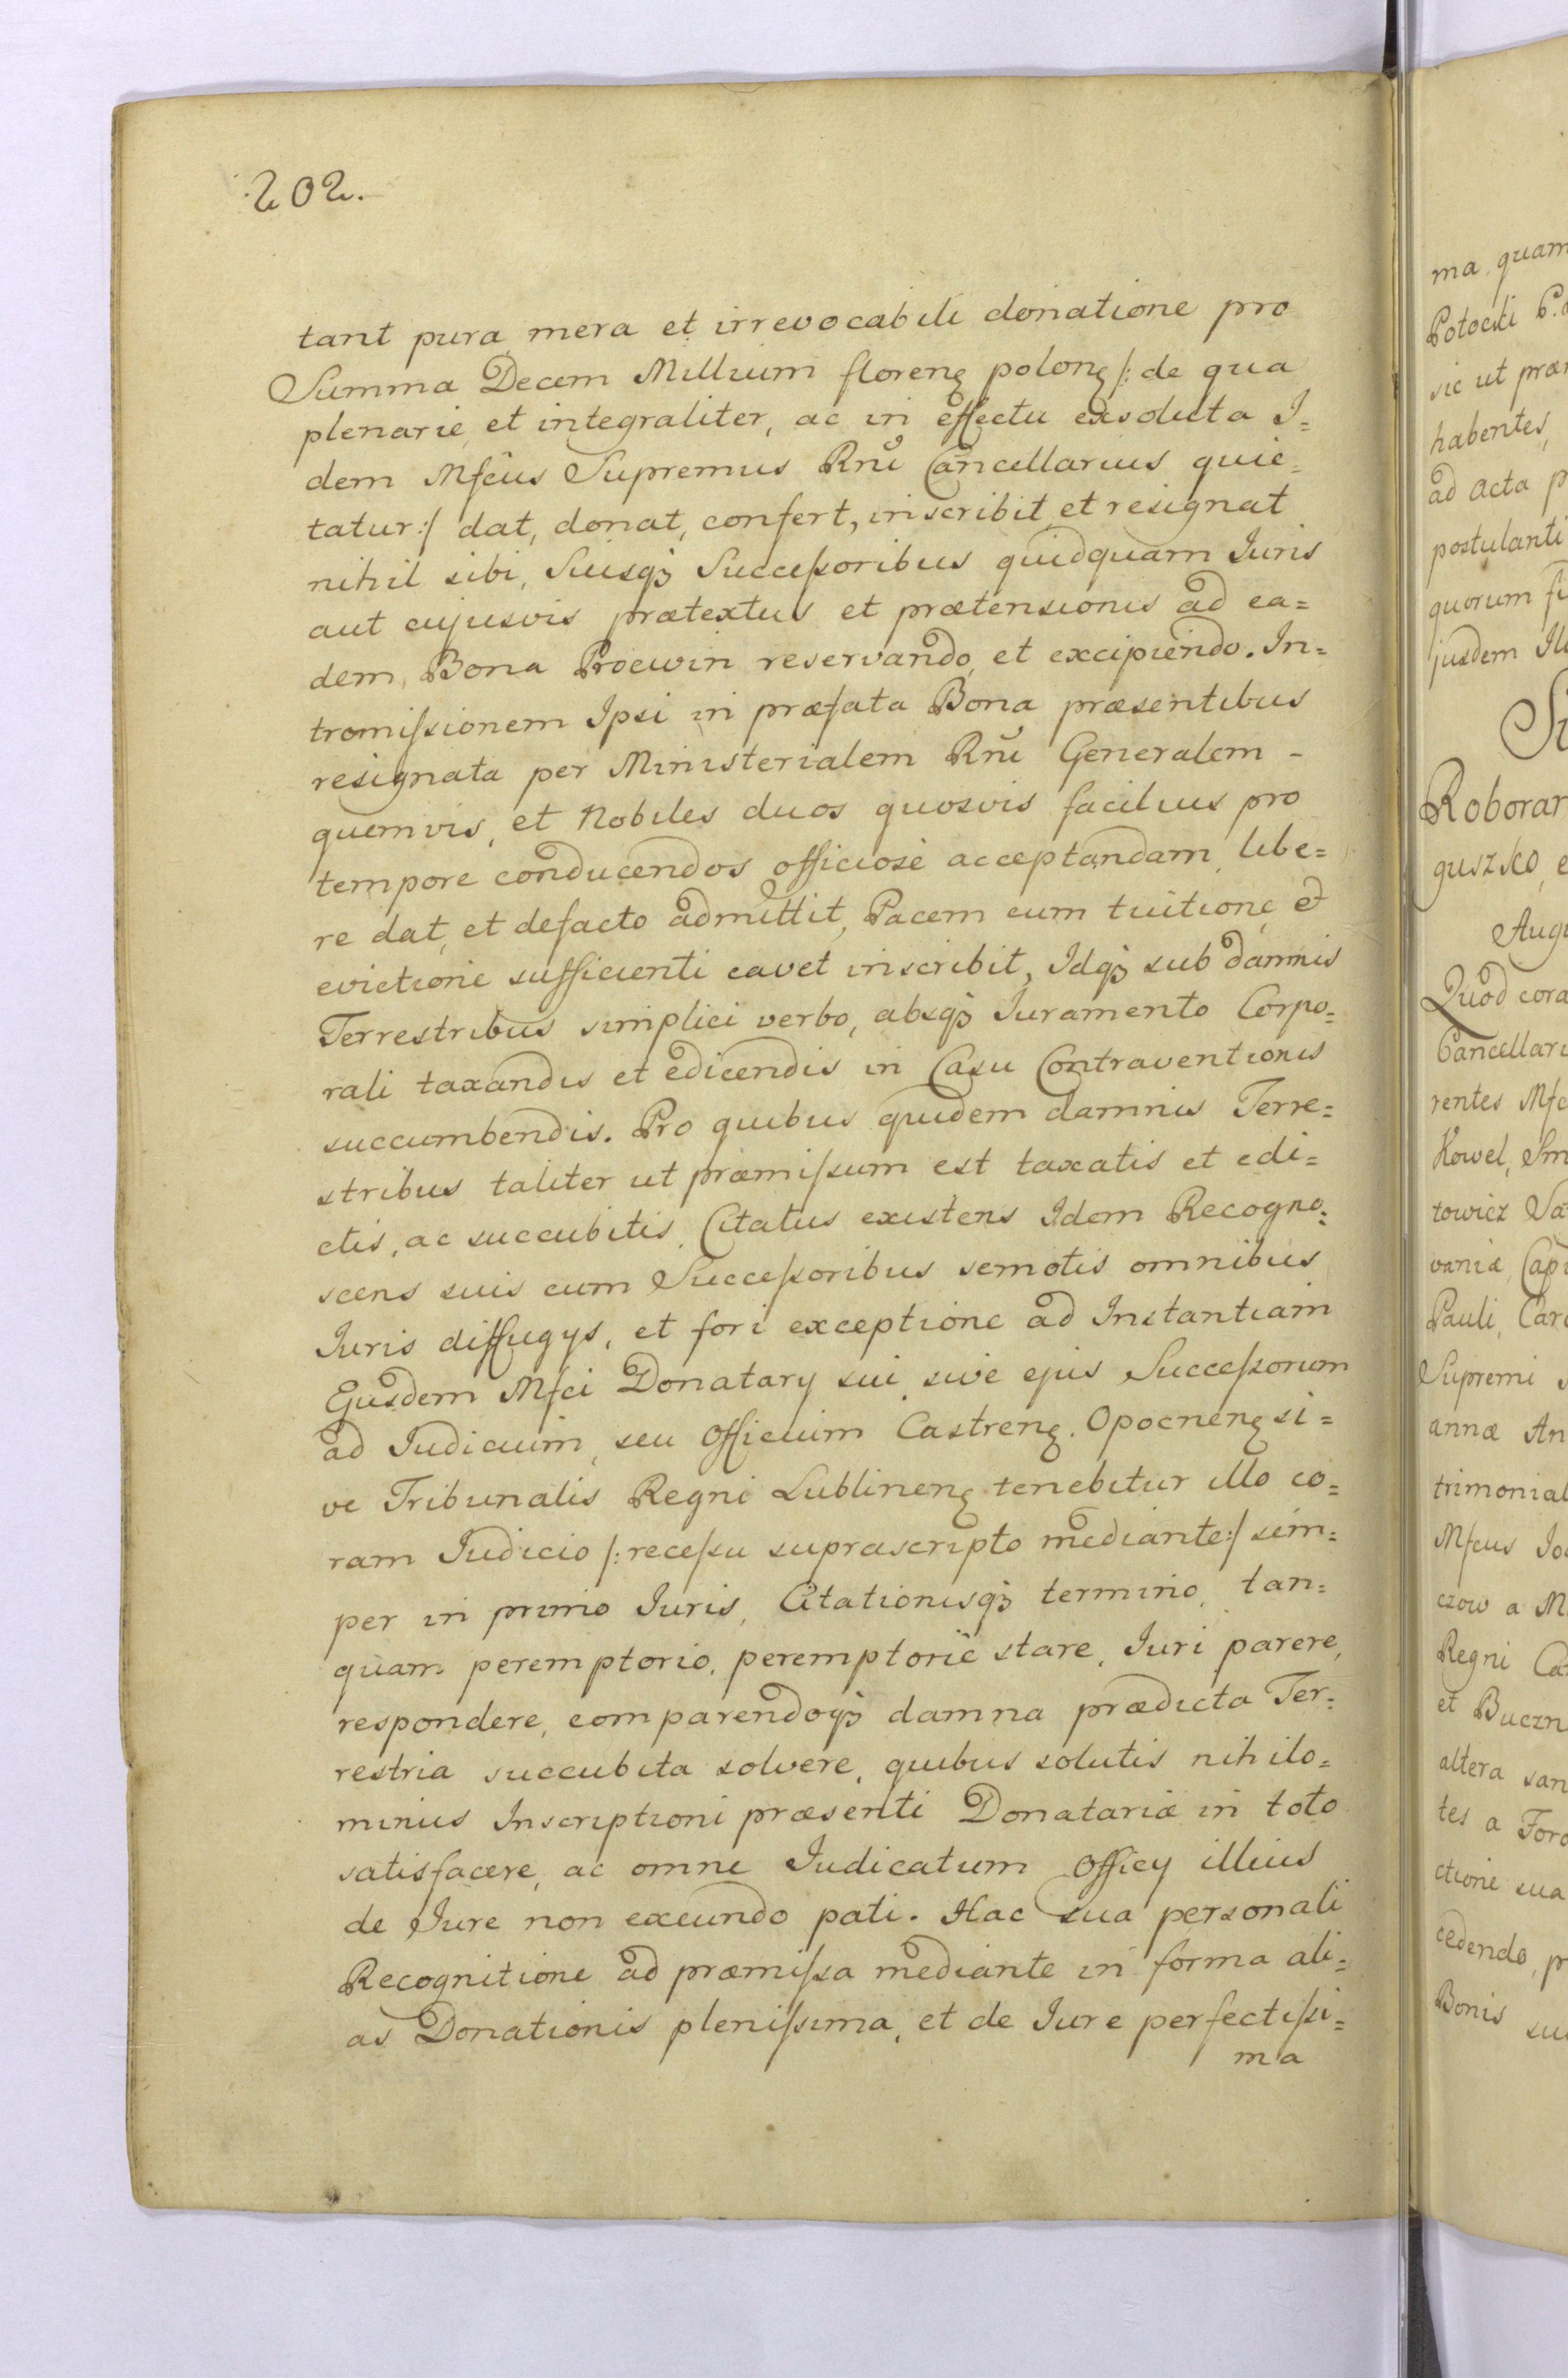 202.
tant pura mera et irrevocabili donatione pro
Summa Decem Millium floreng polong /: de qua
plenarie et integraliter, ac in effectu exsoluta I=
dem Mfcus Supremus Rnĩ Cancellarius quie=
tatur :/ dat, donat, confert, inscribit et resignat
nihil sibi, Suisqꝫ Succeſsoribus quidquam Iuris
aut cujusvis prætextus et prætensionis ad ea=
dem Bona Procwin reservando et excipiendo. In=
tromiſsionem Ipsi in præfata Bona præsentibus
resignata per Ministerialem Rnĩ Generalem -
quemvis, et Nobiles duos quosvis facilius pro
tempore conducendos officiosè acceptandam libe=
re dat, et defacto admittit, Pacem cum tuitione et
evictione sufficienti cavet inscribit, Idqꝫ sub damnis
Terrestribus simplici verbo, absqꝫ Iuramento Corpo=
rali taxandis et edicendis in Casu Contraventionis
succumbendis. Pro quibus quidem damnis Terre=
stribus taliter ut præmiſsum est taxatis et edi=
ctis, ac succubitis, Citatus existens Idem Recogno=
scens suis cum Succeſsoribus semotis omnibus
Iuris diffugys, et fori exceptione ad Instantiam
Ejusdem Mfci Donatary sui, sive ejus Succeſsorum
ad Iudicium, seu Officium Castreng. Opocneng si=
ve Tribunalis Regni Lublineng tenebitur illo co=
ram Iudicio /: receſsu suprascripto mediante :/ sem=
per in primo Iuris, Citationisqꝫ termino, tan=
quam peremptorio, peremptoriè stare, Iuri parere,
respondere, comparendoqꝫ damna prædicta Ter=
restria succubita solvere, quibus solutis nihilo=
minus Inscriptioni præsenti Donatariæ in toto
satisfacere, ac omne Iudicatum Officy illius
de Iure non exeundo pati. Hac sua personali
Recognitione ad præmiſsa mediante in forma ali=
as Donationis pleniſsima, et de Iure perfectiſsi=
ma
ma, quam
Potocki
sic ut præ
habentes,
ad acta p
postulanti
quorum
jusdem
Roborar
guszko, e
Augu
Quod cora
Cancellari
rentes Mfc
Kowel, Sm
towicz
vaniæ, Capi
Pauli, Car
Supremi
annæ An
trimonial
Mfcus Jo
czow a M
Regni Ca
et Buczn
altera san
tes a Foro
ctione sua
cedendo, p
Bonis su